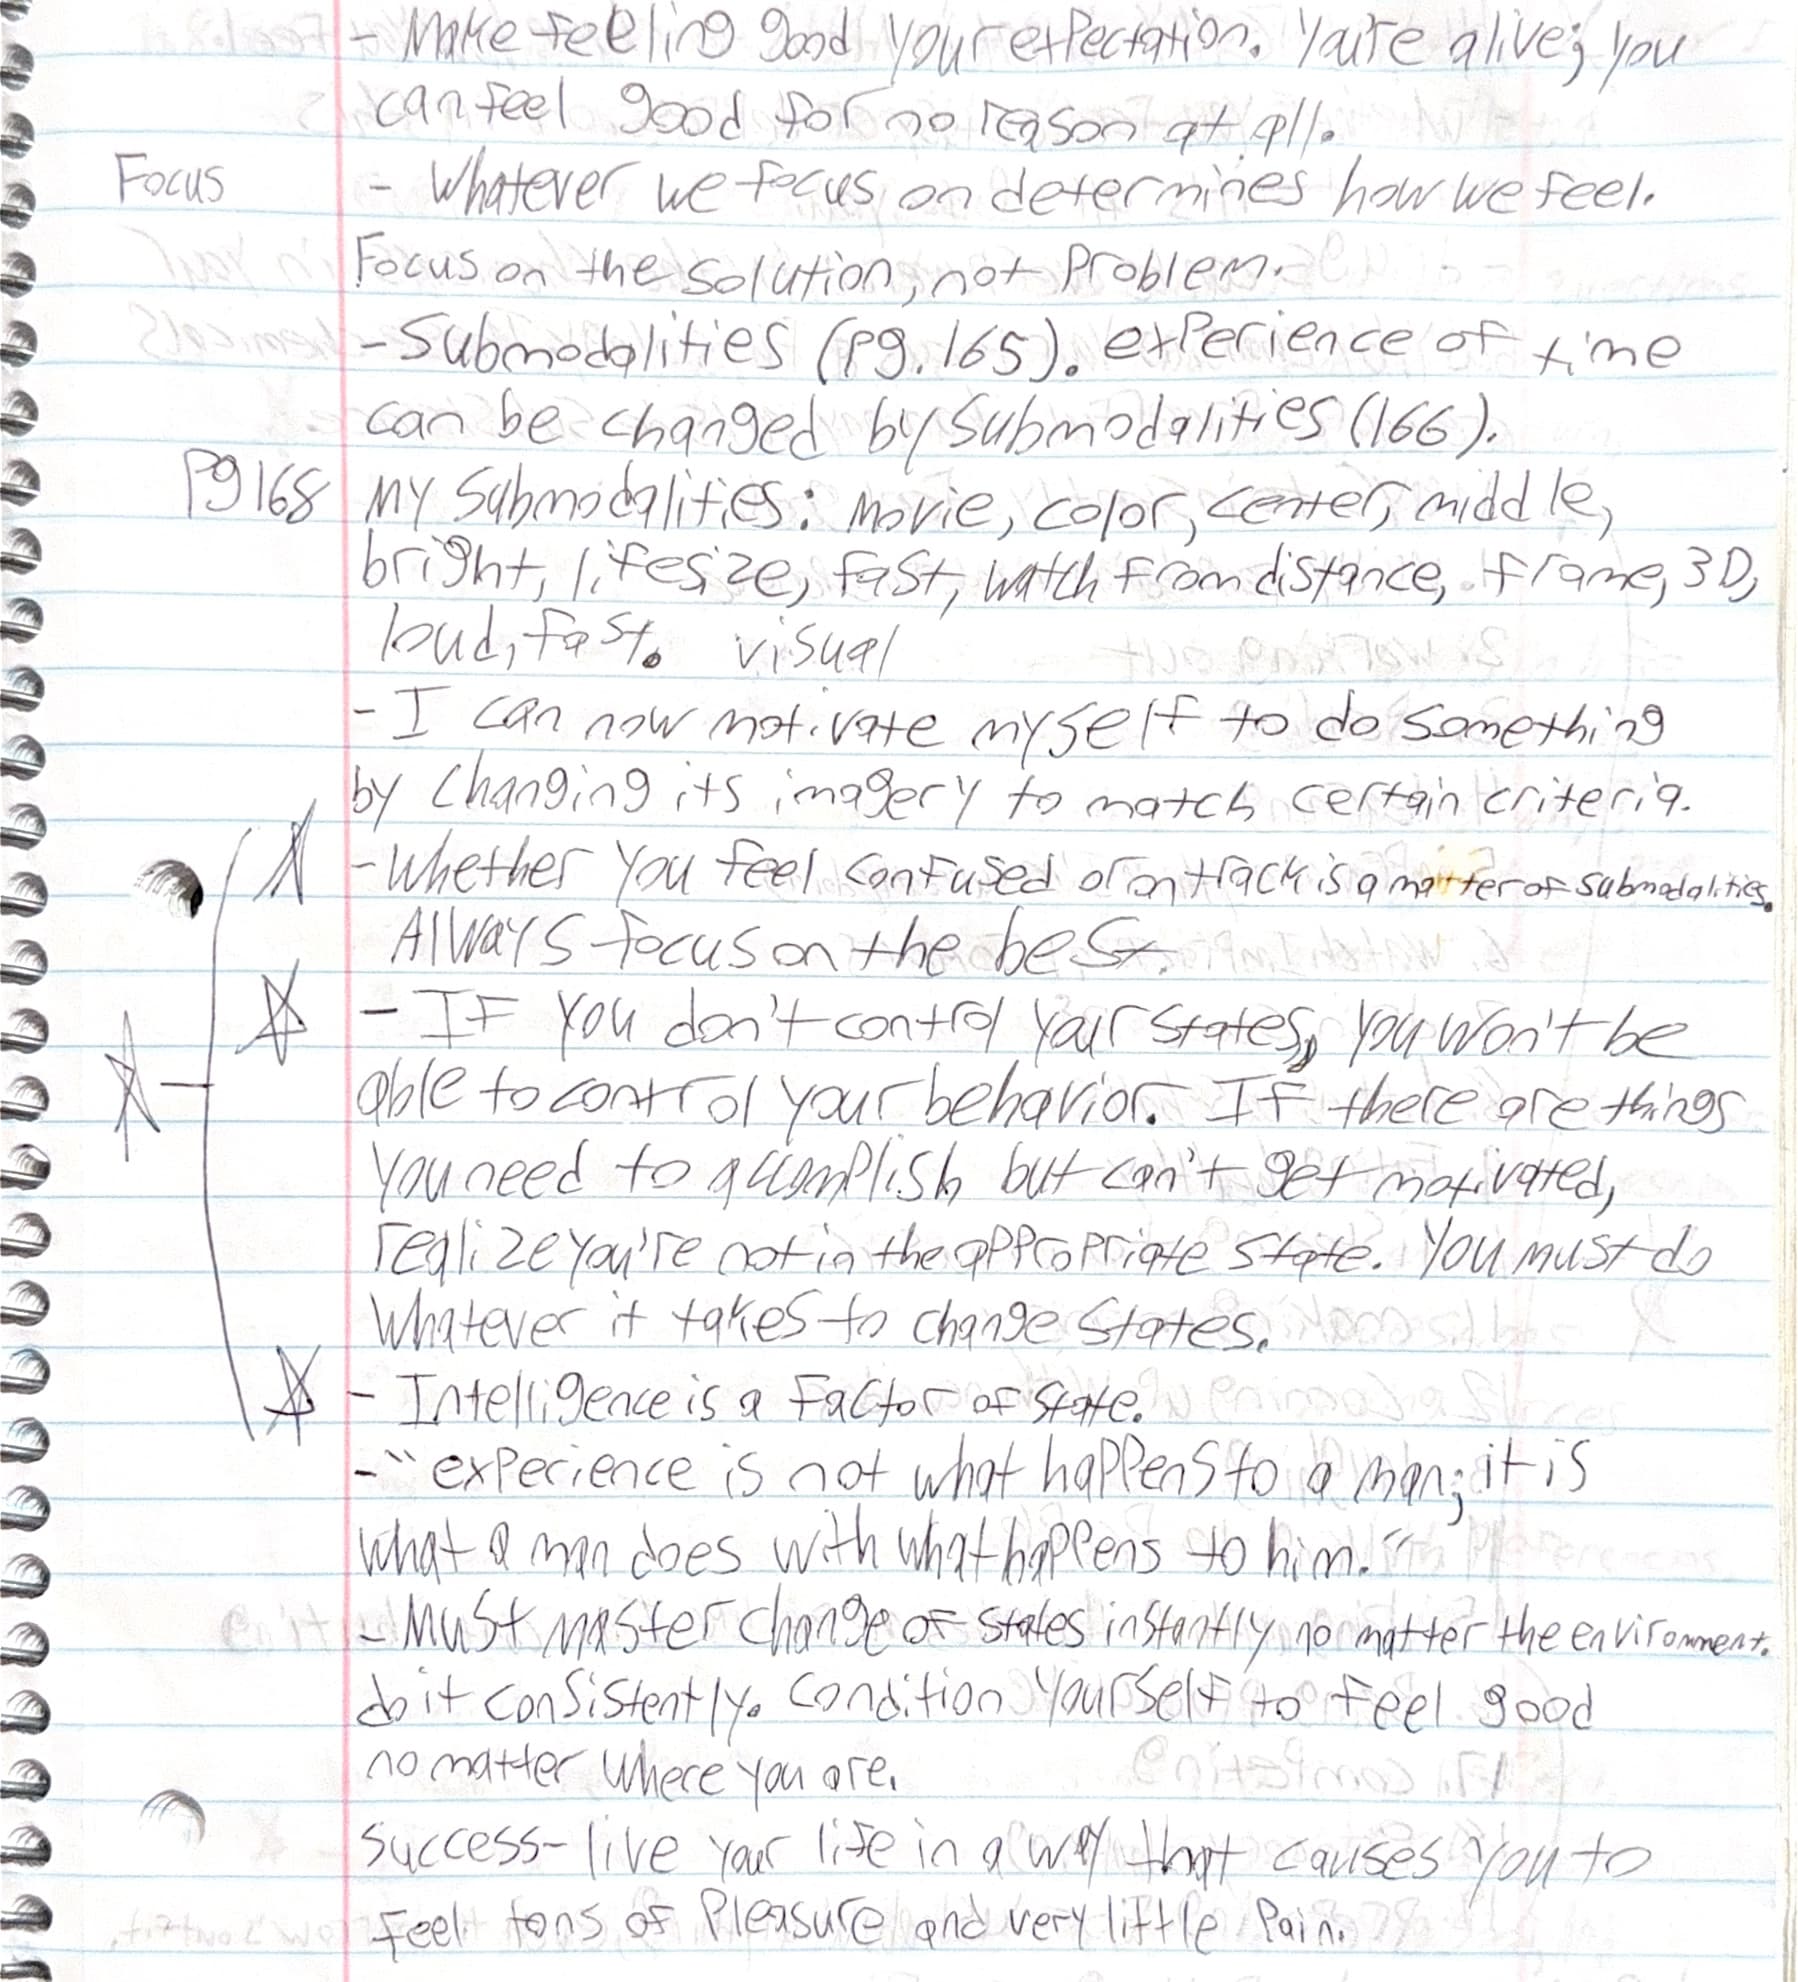 - Make feeling good your expectation. You're alive; you
can feel good for no reason at all.
Focus - Whatever we focus on determines how we feel.
Focus on the solution, not problem.
- Submodalities (pg. 165). experience of time
can be changed by submodalities (166).
Pg 168 My submodalities: movie, color, center, middle,
bright, lifesize, fast, watch from distance, frame, 3D,
loud, fast. visual
- I can now motivate myself to do something
by changing its imagery to match certain criteria.
- Whether you feel confused or on track is a matter of submodalities.
Always focus on the best.
- If you don't control your states, you won't be
able to control your behavior. If there are things
you need to accomplish but can't get motivated,
realize you're not in the appropriate state. You must do
whatever it takes to change states.
- Intelligence is a factor of state.
- "experience is not what happens to a man; it is
what a man does with what happens to him."
- Must master change of states instantly no matter the environment.
do it consistently. Condition yourself to feel good
no matter where you are.
success - live your life in a way that causes you to
feel tons of pleasure and very little pain.